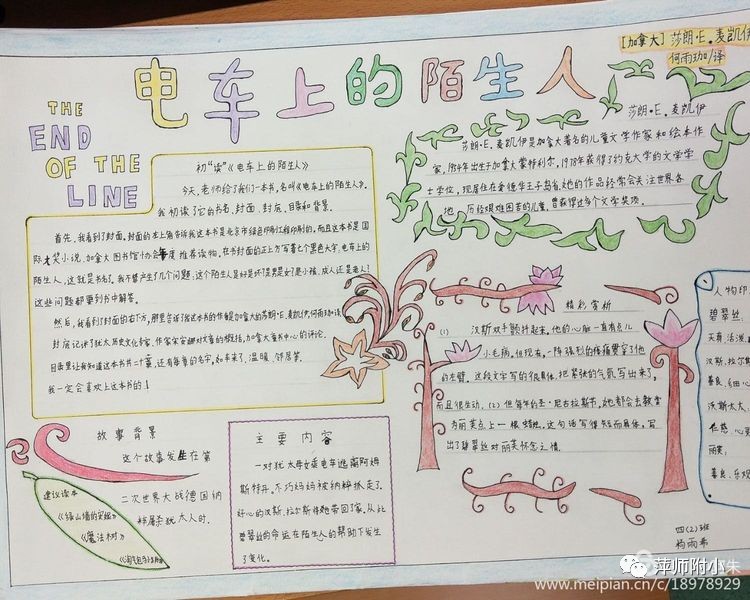 电车上的陌生人
THE
END
OF THE
LINE
[加拿大]莎朗·E.麦凯伊
何雨珈/译
莎朗·E.麦凯伊
莎朗·E.麦凯伊是加拿大著名的儿童文学作家和绘本作
家,1954年出生于加拿大蒙特利尔,1978年获得了约克大学的文学学
士学位,现居住在爱德华王子岛省,她的作品经常会关注世界各
地,历经艰难困苦的儿童,曾获得过多个文学奖项。
初“读”《电车上的陌生人》
今天,老师给了我们一本书,名叫《电车上的陌生人》。
我初读了它的书名、封面、封底、目录和背景。
首先,我看到了封面。封面的左上角告诉我这本书是北京市绿色印刷工程印刷的。而且这本书是国
际大奖小说、加拿大图书馆协会年度推荐读物。在书封面的正上方写着七个黑色大字,电车上的
陌生人,这就是书名了。我不禁产生了几个问题,这个陌生人是好是坏?是男是女?是小孩,成人还是老人?
这些问题都要到书中解答。
然后,我看到了封面的右下方,那里告诉了我这本书的作者是加拿大的莎朗·E.麦凯伊,何雨珈译
封底记译了犹太历史文化专家、作家宋安娜对文章的概括,加拿大童书中心的评论。
目录里让我知道这本书共二十章,还有每章的名字,如未来了、温暖、邻居等。
我一定会喜欢上这本书的!
精彩赏析
(1) 汉斯双手颤抖起来,他的心脏一直有点儿
小毛病,但现在,一阵强烈的疼痛贯穿了他
的左臂。这段文字写的很具体,把紧张的气氛写出来了,
而且很生动。(2)但每年的圣·尼古拉斯节,她都会去教堂
为丽芙点上一根蜡烛,这句话写得短而具体,写
出了碧翠丝对丽芙怀念之情。
人物印
碧翠丝:
天真、活泼、
汉斯、拉尔斯
善良、细心
沃斯太太、
慈、心
丽芙:
善良、乐观
故事背景
这个故事发生在第
二次世界大战德国纳
粹屠杀犹太人时.
建议读本
《绿山墙的安妮》
《魔法树》
主要内容
一对犹太母女乘电车逃南阿姆
斯特丹,不巧妈妈被纳粹抓走了.
好心的汉斯、拉尔斯将她带回了家,从此
碧翠丝的命运在陌生人的帮助下发生
了变化。
四(2)班
杨雨希
萍师附小朱
www.meipian.cn/c/18978929